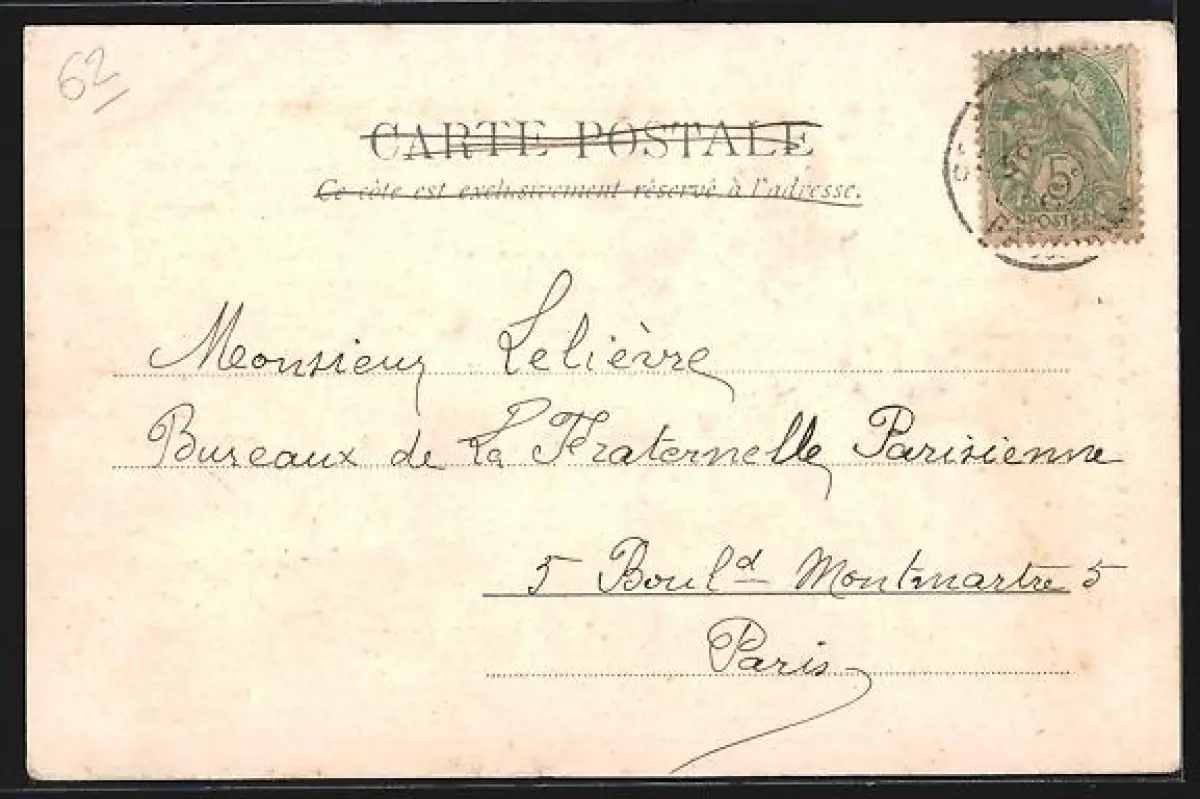 62
CARTE POSTALE
Ce côte est exclusivement réservé à l'adresse.
5
POSTES
Monsieur Lelièvre
Bureaux de La Fraternelle Parisienne
5 Boul^d Montmartre 5
Paris